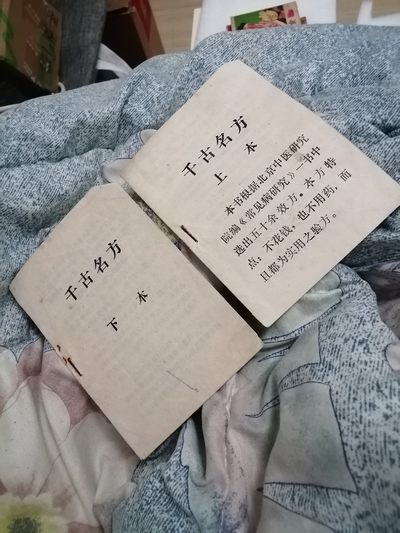 千古名方
上 本
本书根据北京中医研究
院编《常见病研究》一书中
选出五十余效方。本方特
点：不花钱、也不用药，而
且都为实用之脸方。
千古名方
下 本